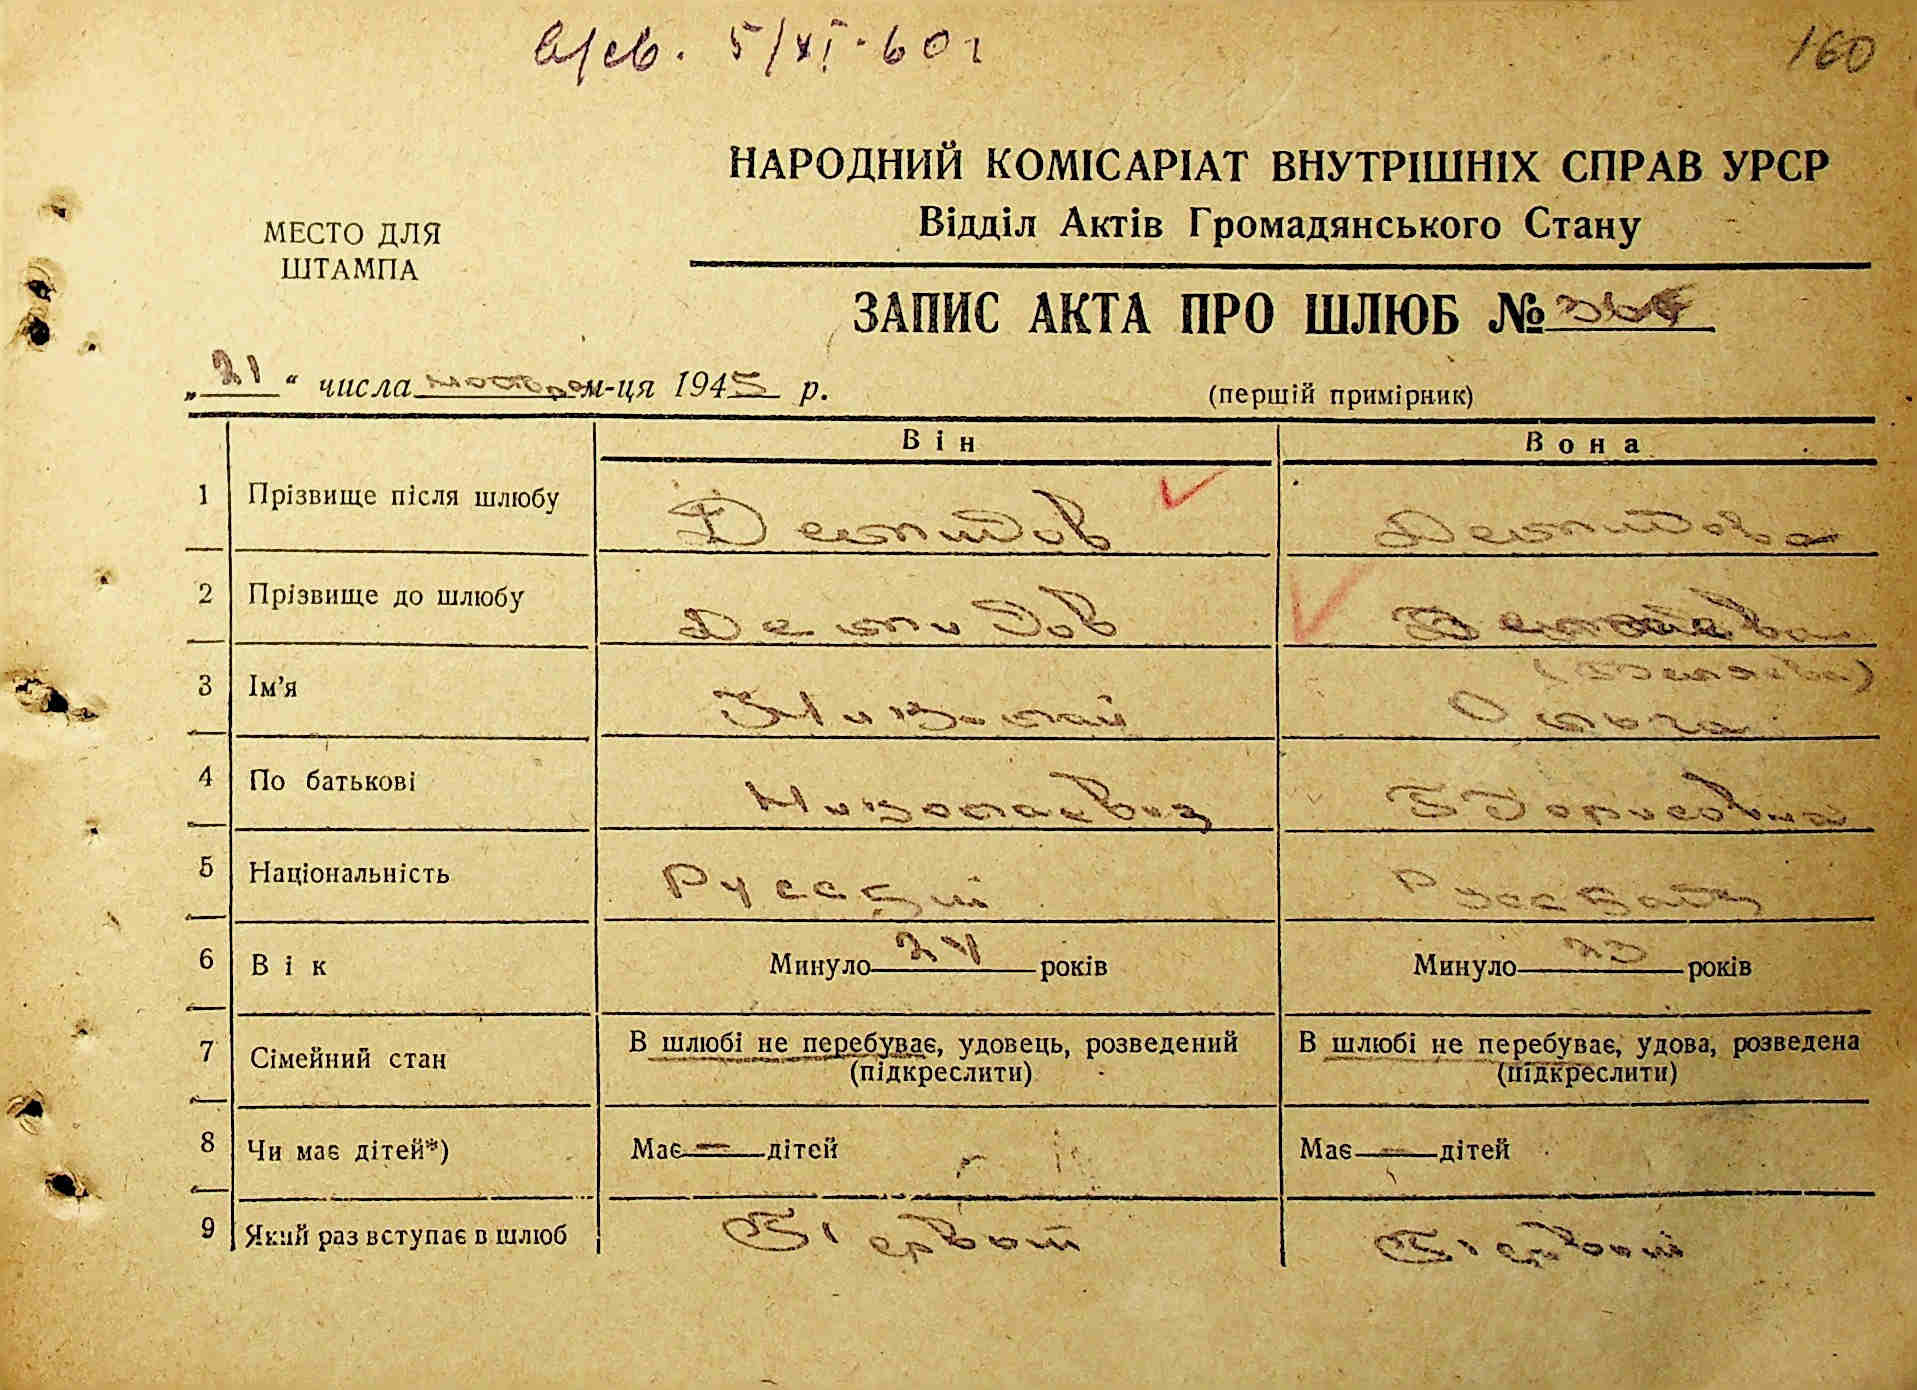 5/XI·60 г
160
НАРОДНИЙ КОМІСАРІАТ ВНУТРІШНІХ СПРАВ УРСР
Відділ Актів Громадянського Стану
МЕСТО ДЛЯ
ШТАМПА
ЗАПИС АКТА ПРО ШЛЮБ №
„21“ числа ноября м-ця 1945 р.
(першій примірник)
Він Вона
1 Прізвище після шлюбу Демидов Демидова
2 Прізвище до шлюбу Демидов
(Беляева)
3 Ім'я Николай Ольга
4 По батькові Николаевич Борисовна
5 Національність Русский Русская
6 Вік Минуло 24 років Минуло 23 років
7 Сімейний стан В шлюбі не перебуває, удовець, розведений В шлюбі не перебуває, удова, розведена
(підкреслити) (підкреслити)
8 Чи має дітей*) Має — дітей Має — дітей
9 Який раз вступає в шлюб Первый Первый